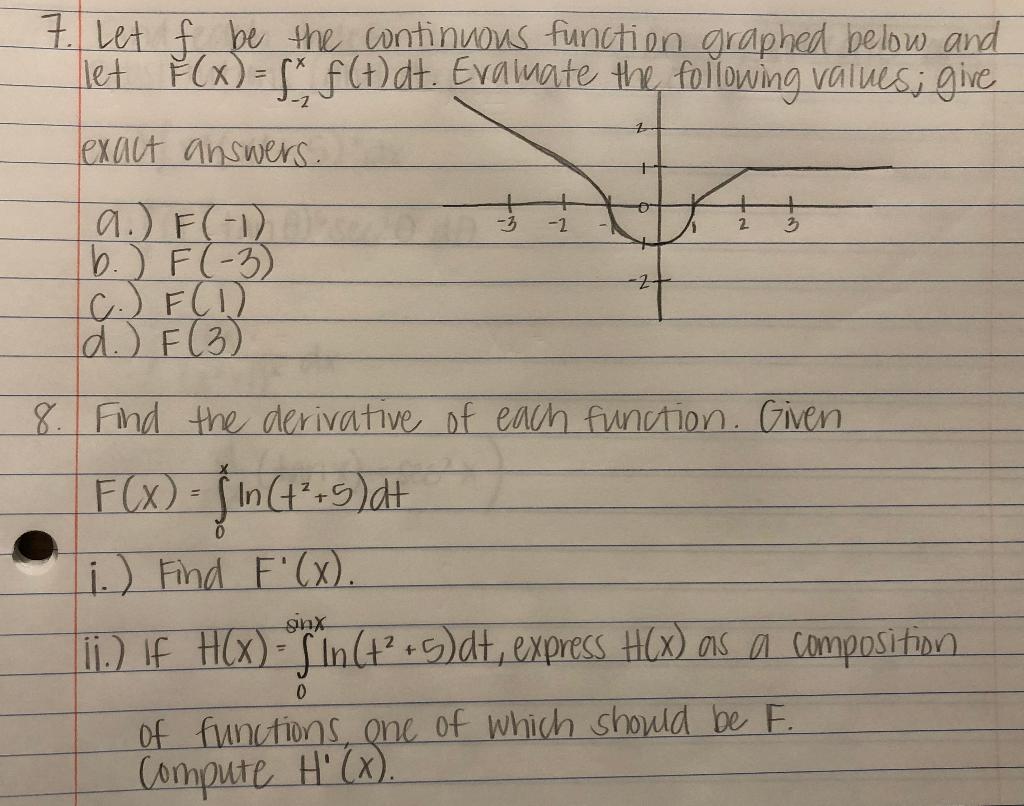 7. Let f be the continuous function graphed below and
let F(x) = ∫₋₂ˣ f(t)dt. Evaluate the following values; give
exact answers.
2
1
0
-3 -2 -1 1 2 3
-2
a.) F(-1)
b.) F(-3)
c.) F(1)
d.) F(3)
8. Find the derivative of each function. Given
F(x) = ∫₀ˣ ln(t²+5)dt
i.) Find F'(x).
ii.) If H(x) = ∫₀^sinx ln(t²+5)dt, express H(x) as a composition
of functions, one of which should be F.
Compute H'(x).